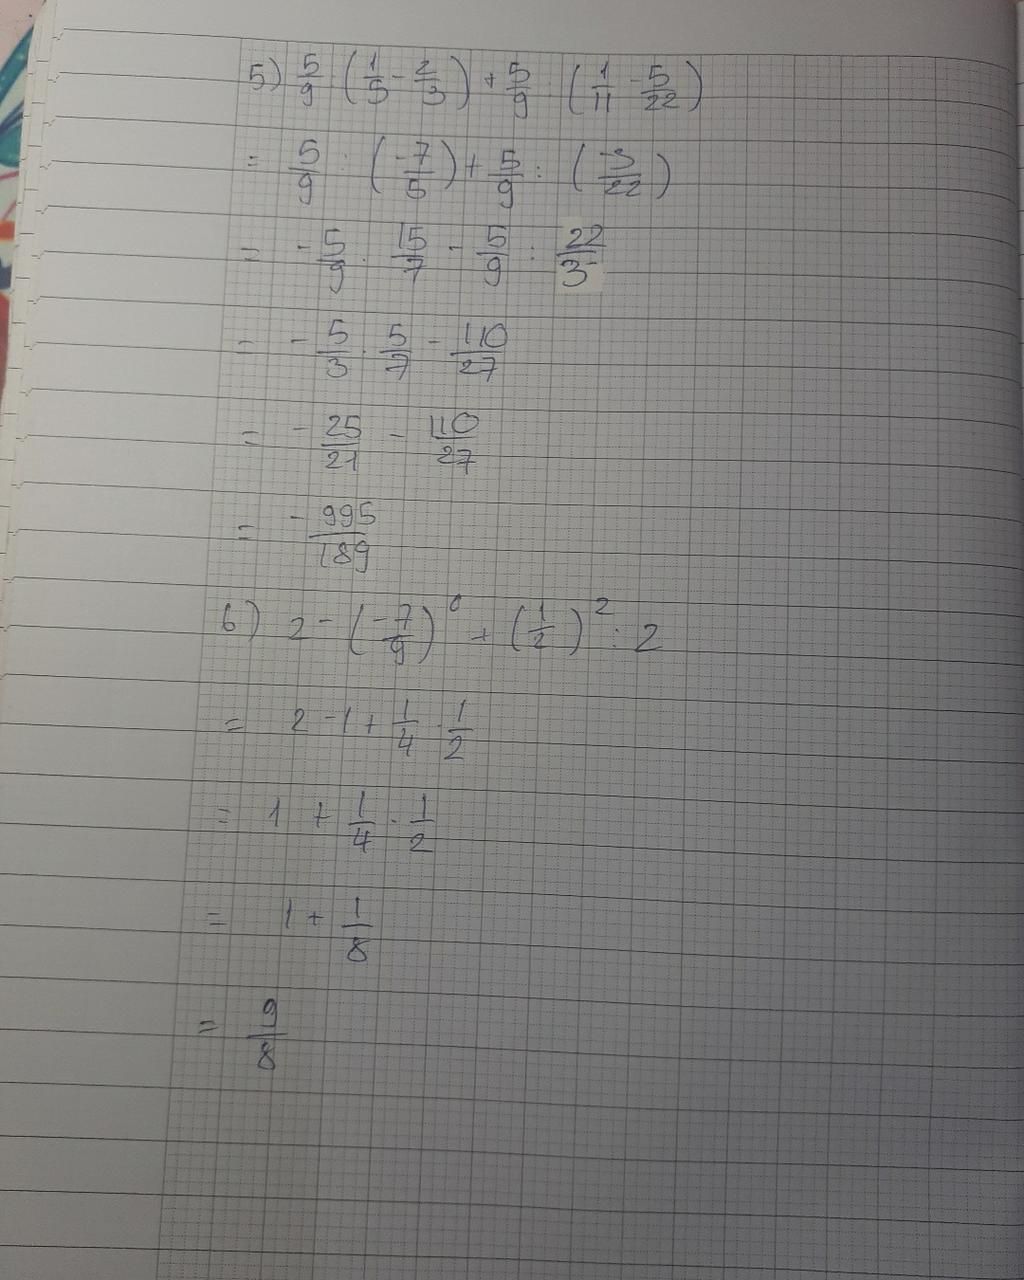 5) 5/9 (1/5 - 2/3) + 5/9 (1/11 - 5/22)
= 5/9 : (-7/5) + 5/9 : (-3/22)
= -5/9 · 15/7 - 5/9 : 22/3
= -5/3 · 5/7 - 110/27
= -25/21 - 110/27
= -995/189
6) 2 - (-7/9)^0 + (1/2)^2 : 2
= 2 - 1 + 1/4 · 1/2
= 1 + 1/4 · 1/2
= 1 + 1/8
= 9/8